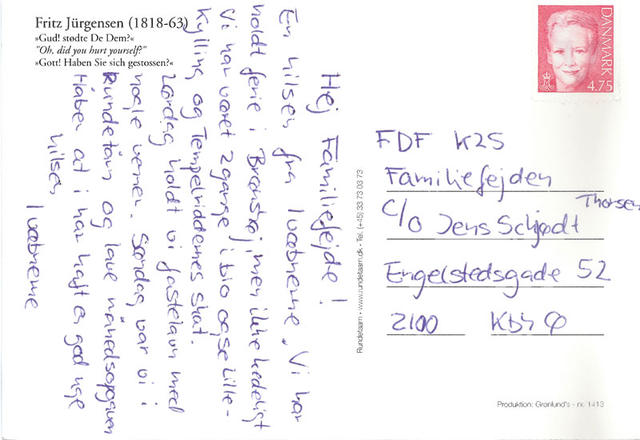 Fritz Jürgensen (1818-63)
»Gud! stødte De Dem?«
"Oh, did you hurt yourself?"
»Gott! Haben Sie sich gestossen?«
Hej Familiefejde!
En hilsen fra Ivæbnerne. Vi har
holdt ferie i Brønshøj, men ikke kedeligt
Vi har været 2 gange i bio og se Lille-
Kylling og Tempelriddernes skat.
Lørdag holdt vi fastelavn med
nogle venner. Søndag var vi i
Rundetårn og lave månedsopgaven
Håber at i har haft en god uge
hilsen
Ivæbnerne
DANMARK
4.75
FDF K25
Familiefejden
C/O Jens Schjødt Thorsen
Engelstedsgade 52
2100 Kbh Ø
Rundetaarn • www.rundetaarn.dk • Tel. (+45) 33 73 03 73
Produktion: Grønlund's - nr. 1413